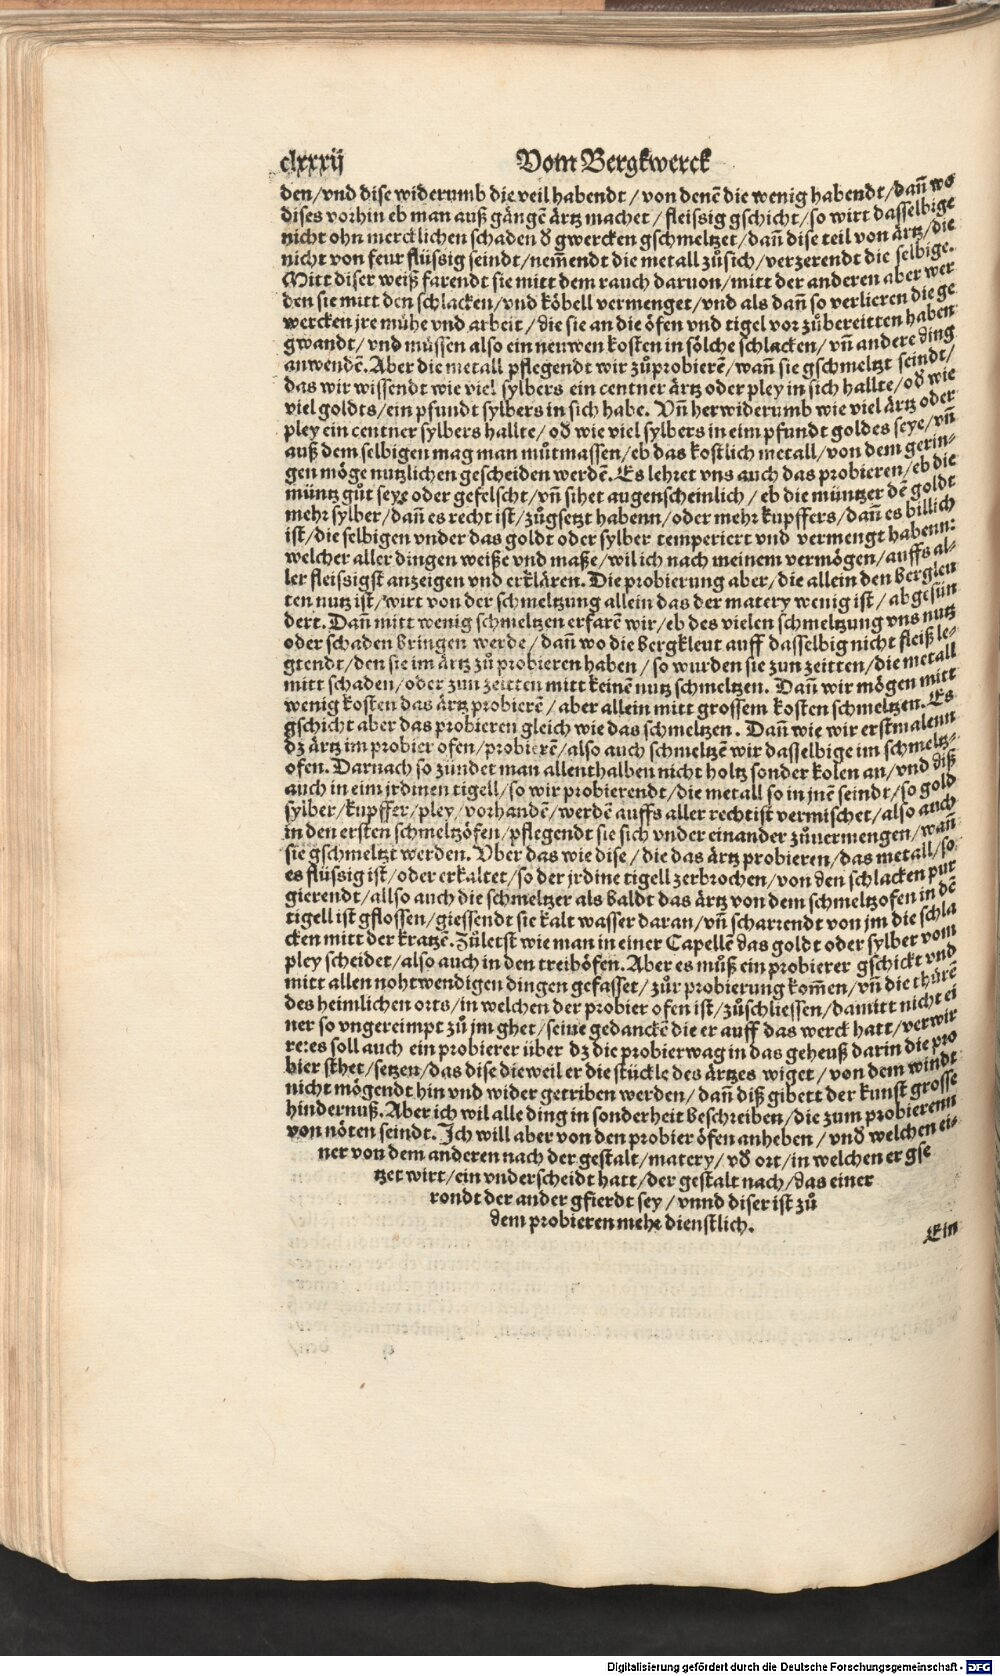 clxxxij Vom Bergkwerck
den/vnd dise widerumb die veil habendt/von denē die wenig habendt/dañ wo
dises vorhin eb man auß gängē ärtz machet/fleissig gschicht/so wirt dasselbige
nicht ohn mercklichen schaden ď gwercken gschmeltzet/dañ dise teil von ärtz/die
nicht von feur flüssig seindt/nem̃endt die metall zůsich/verzerendt die selbige.
Mitt diser weiß farendt sie mitt dem rauch daruon/mitt der anderen aber wer
den sie mitt den schlacken/vnd köbell vermenget/vnd als dañ so verlieren die ge
wercken jre mühe vnd arbeit/die sie an die öfen vnd tigel vor zůbereitten haben
gwandt/vnd müssen also ein neuwen kosten in sölche schlacken/vñ andere ding
anwendē. Aber die metall pflegendt wir zůprobierē/wañ sie gschmeltzt seindt/
das wir wissendt wie viel sylbers ein centner ärtz oder pley in sich hallte/oď wie
viel goldts/ein pfundt sylbers in sich habe. Vñ herwiderumb wie viel ärtz oder
pley ein centner sylbers hallte/oď wie viel sylbers in eim pfundt goldes seye/vñ
auß dem selbigen mag man můtmassen/eb das kostlich metall/von dem gerin-
gen möge nutzlichen gescheiden werdē. Es lehret vns auch das probieren/eb die
müntz gůt seye oder gefelscht/vñ sihet augenscheinlich/eb die müntzer dē goldt
mehr sylber/dañ es recht ist/zůgsetzt habenn/oder mehr kupffers/dañ es billich
ist/die selbigen vnder das goldt oder sylber temperiert vnd vermengt habenn:
welcher aller dingen weiße vnd maße/wil ich nach meinem vermögen/auffs al-
ler fleissigst anzeigen vnd erklären. Die probierung aber/die allein den bergleu
ten nutz ist/wirt von der schmeltzung allein das der matery wenig ist/abgesün
dert. Dañ mitt wenig schmeltzen erfarē wir/eb des vielen schmeltzung vns nutz
oder schaden bringen werde/dañ wo die bergkleut auff dasselbig nicht fleiß le-
gtendt/den sie im ärtz zů probieren haben/so wurden sie zun zeitten/die metall
mitt schaden/oder zun zeitten mitt keinē nutz schmeltzen. Dañ wir mögen mitt
wenig kosten das ärtz probierē/aber allein mitt grossem kosten schmeltzen. Es
gschicht aber das probieren gleich wie das schmeltzen. Dañ wie wir erstmalenn
dz ärtz im probier ofen/probierē/also auch schmeltzē wir dasselbige im schmeltz-
ofen. Darnach so zündet man allenthalben nicht holtz sonder kolen an/vnd diß
auch in eim jrdinen tigell/so wir probierendt/die metall so in jnē seindt/so gold
sylber/kupffer/pley/vorhandē/werdē auffs aller rechtist vermischet/also auch
in den ersten schmeltzöfen/pflegendt sie sich vnder einander zůuermengen/wañ
sie gschmeltzt werden. Vber das wie dise/die das ärtz probieren/das metall/so
es flüssig ist/oder erkaltet/so der jrdine tigell zerbrochen/von den schlacken pur
gierendt/allso auch die schmeltzer als baldt das ärtz von dem schmeltzofen in dē
tigell ist gflossen/giessendt sie kalt wasser daran/vñ scharrendt von jm die schla
cken mitt der kratzē. Zůletst wie man in einer Capellē das goldt oder sylber vom
pley scheidet/also auch in den treiböfen. Aber es můß ein probierer gschickt vnd
mitt allen nohtwendigen dingen gefasset/zůr probierung kom̃en/vñ die thürē
des heimlichen orts/in welchen der probier ofen ist/zůschliessen/damitt nicht ei
ner so vngereimpt zů jm ghet/seine gedanckē die er auff das werck hatt/verwir
re: es soll auch ein probierer über dz die probierwag in das geheuß darin die pro
bier sthet/setzen/das dise dieweil er die stückle des ärtzes wiget/von dem windt
nicht mögendt hin vnd wider getriben werden/dañ diß gibett der kunst grosse
hindernuß. Aber ich wil alle ding in sonderheit beschreiben/die zum probierenn
von nöten seindt. Ich will aber von den probier öfen anheben/vnď welchen ei-
ner von dem anderen nach der gestalt/matery/vď ort/in welchen er gse
tzet wirt/ein vnderscheidt hatt/der gestalt nach/das einer
rondt der ander gfierdt sey/vnnd diser ist zů
dem probieren mehe dienstlich.
Ein
Digitalisierung gefördert durch die Deutsche Forschungsgemeinschaft - DFG